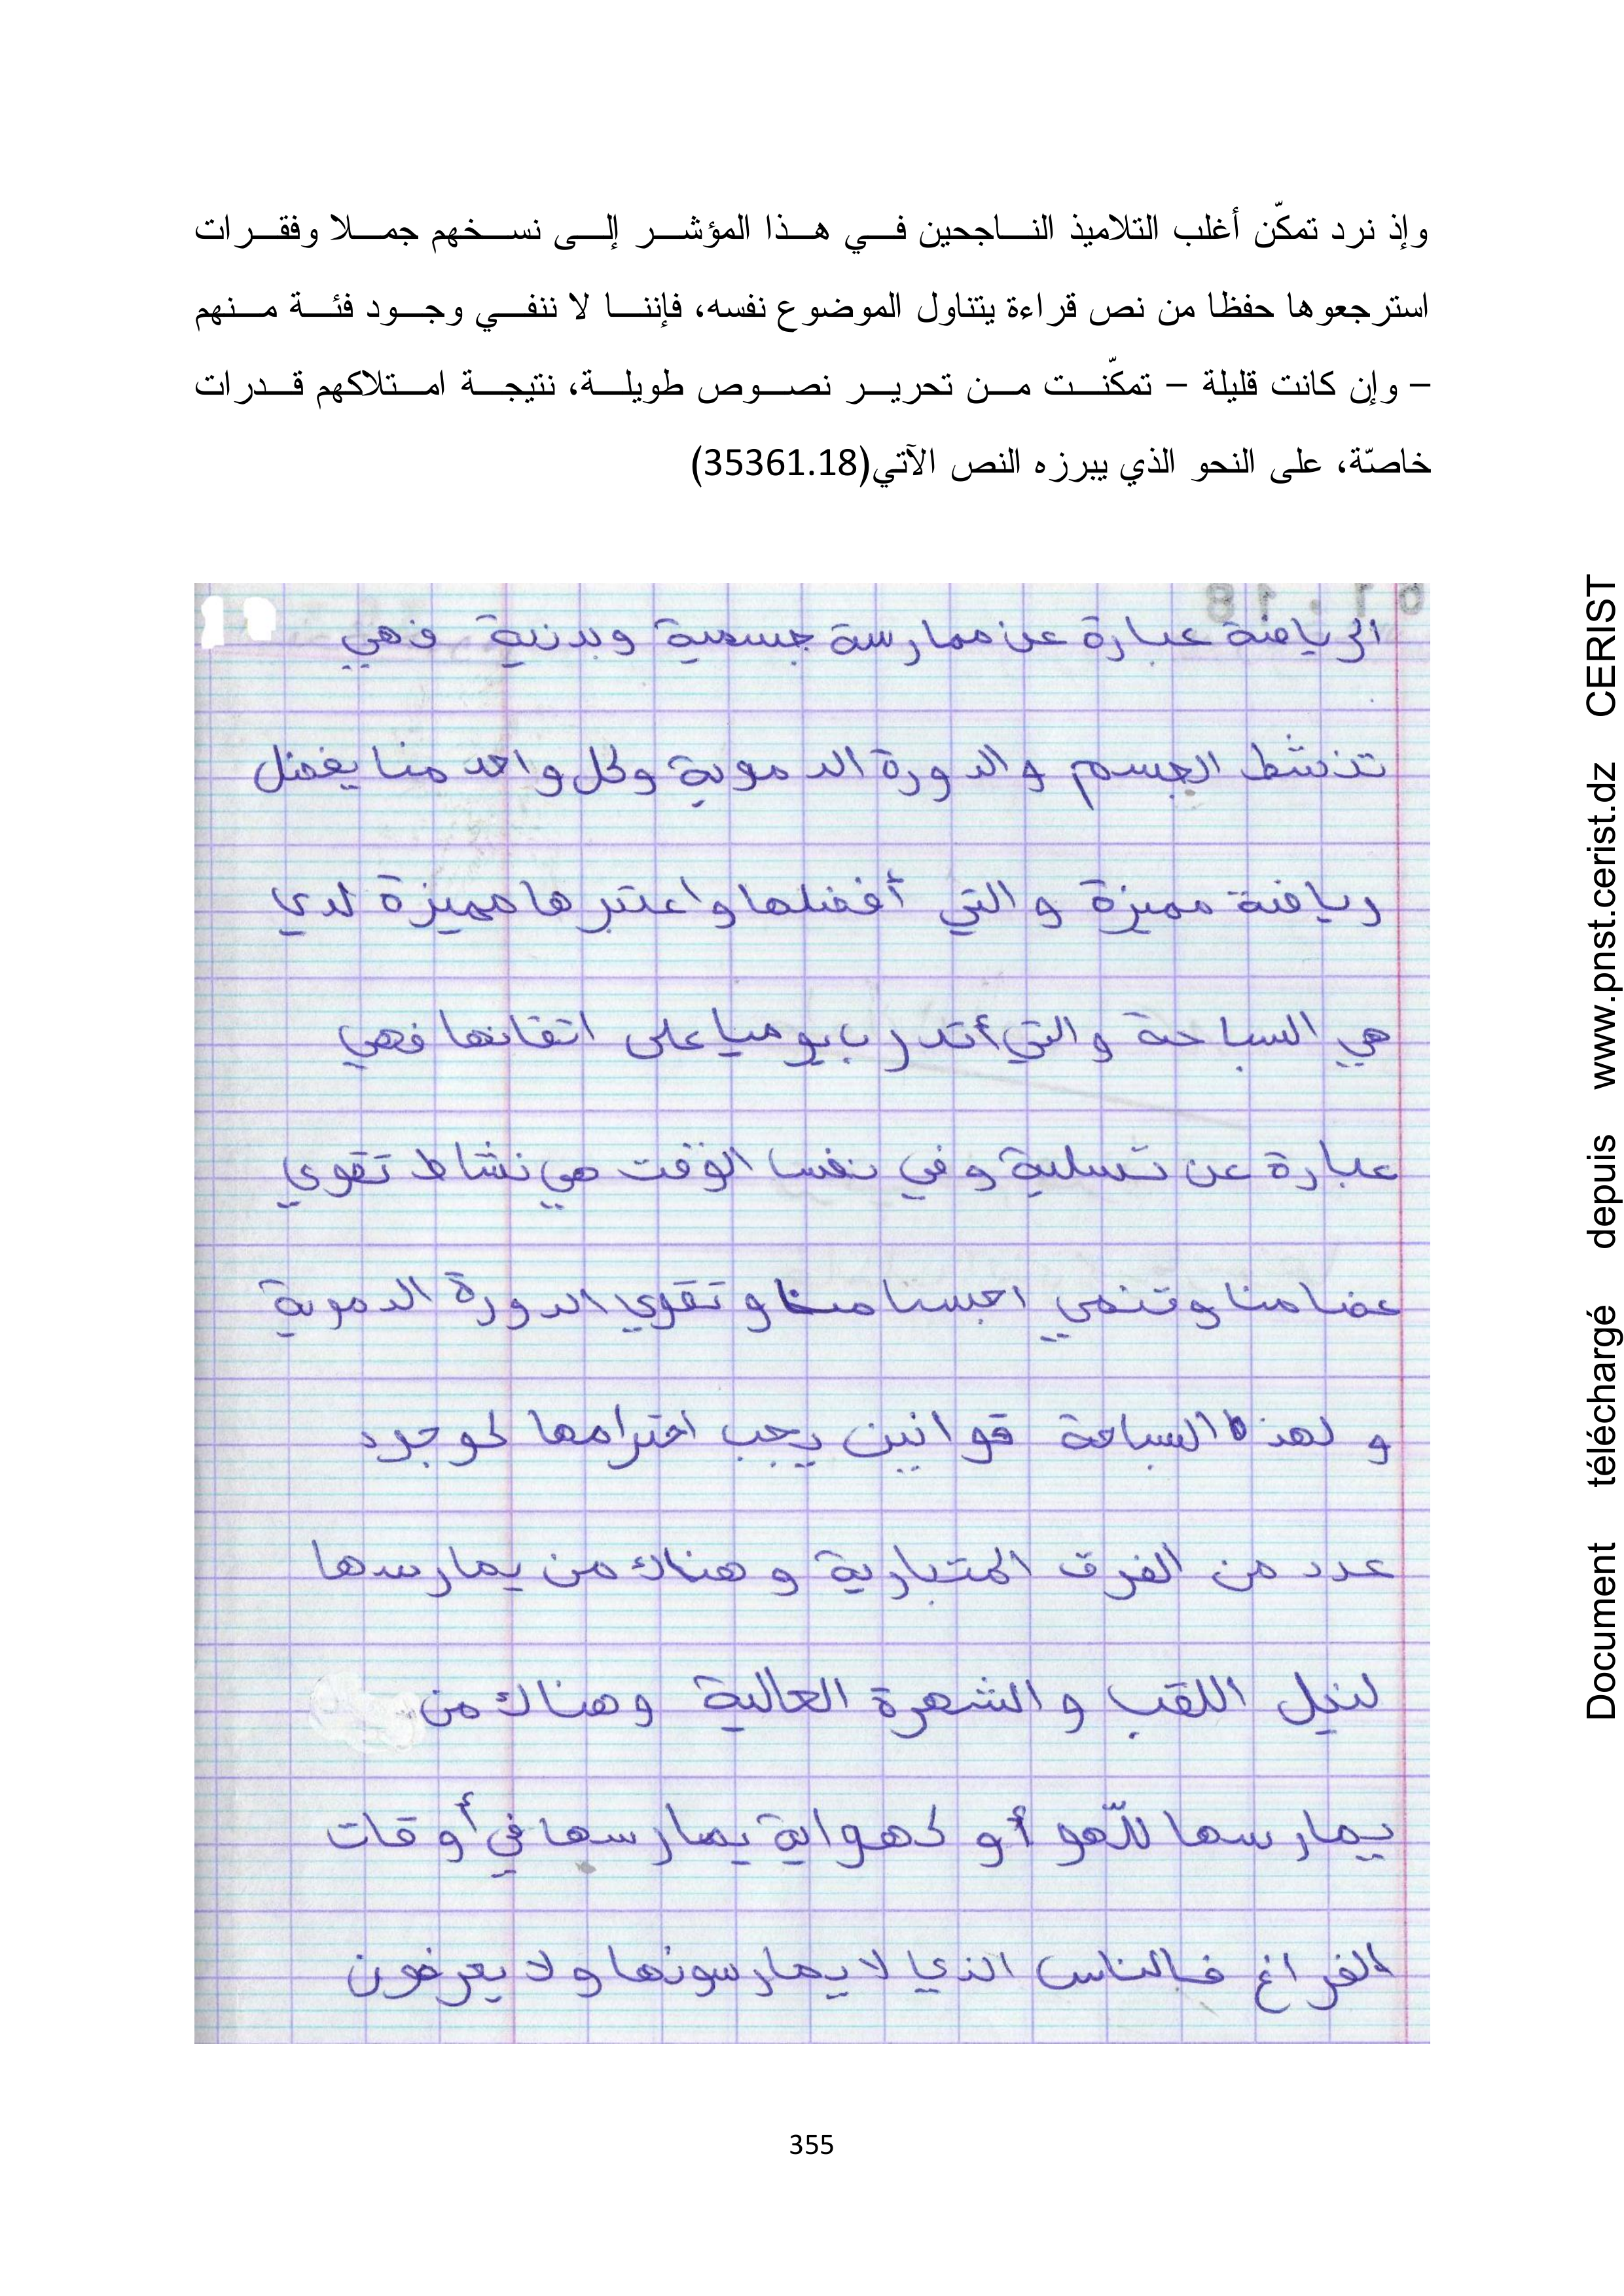 وإذ نرد تمكّن أغلب التلاميذ الناجحين في هذا المؤشر إلى نسخهم جملا وفقرات
استرجعوها حفظا من نص قراءة يتناول الموضوع نفسه، فإننا لا ننفي وجود فئة منهم
– وإن كانت قليلة – تمكّنت من تحرير نصوص طويلة، نتيجة امتلاكهم قدرات
خاصّة، على النحو الذي يبرزه النص الآتي(35361.18)
الرياضة عبارة عن ممارسة جسمية وبدنية فهي
تنشط الجسم والدورة الدموية وكل واحد منا يفضل
رياضة مميزة والتي أفضلها واعتبرها مميزة لدي
هي السباحة والتي أتدرب يوميا على اتقانها فهي
عبارة عن تسلية وفي نفس الوقت هي نشاط تقوي
عضامنا وتنمي اجسنامنا وتقوي الدورة الدموية
ولهذه السباحة قوانين يجب احترامها لوجود
عدد من الفرق المتبارية وهناك من يمارسها
لنيل اللقب والشهرة العالية وهناك من
يمارسها للّهو أو كهواية يمارسها في أوقات
الفراغ فالناس الذي لا يمارسونها ولا يعرفون
355
Document téléchargé depuis www.pnst.cerist.dz CERIST